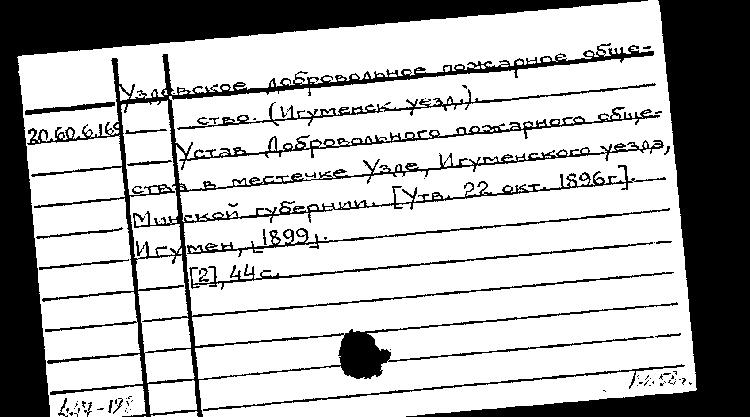 Уздевское добровольное пожарное обще-
ство. (Игуменск. уезд.).
20.60.6.169.
Устав Добровольного пожарного обще-
ства в местечке Узде, Игуменского уезда,
Минской губернии. [Утв. 22 окт. 1896г.].
Игумен, 1899.
[2], 44 с.